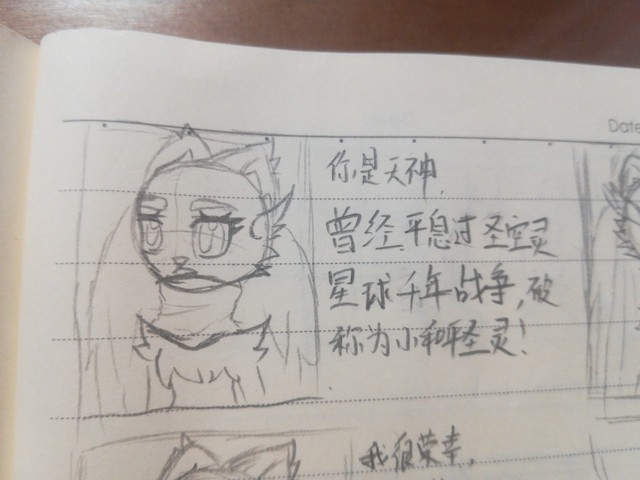 Date
你是天神,
曾经平息过圣空灵
星球千年战争,被
称为小和怪灵!
我很荣幸,